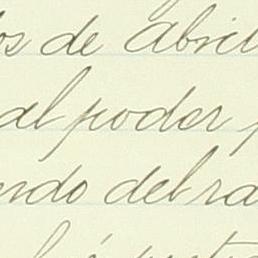 os de Abril
al poder
ndo del ra